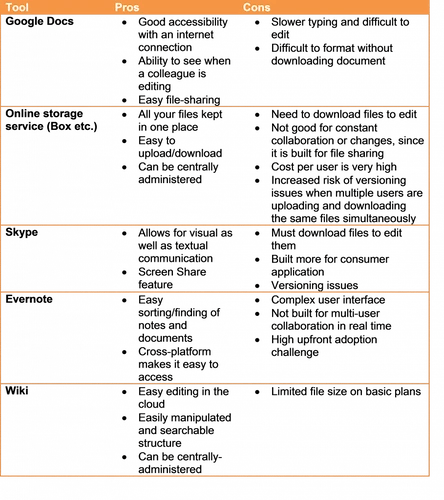 Tool Pros Cons
Google Docs
• Good accessibility
with an internet
connection
• Ability to see when
a colleague is
editing
• Easy file-sharing
• Slower typing and difficult to
edit
• Difficult to format without
downloading document
Online storage
service (Box etc.)
• All your files kept
in one place
• Easy to
upload/download
• Can be centrally
administered
• Need to download files to edit
• Not good for constant
collaboration or changes, since
it is built for file sharing
• Cost per user is very high
• Increased risk of versioning
issues when multiple users are
uploading and downloading
the same files simultaneously
Skype
• Allows for visual as
well as textual
communication
• Screen Share
feature
• Must download files to edit
them
• Built more for consumer
application
• Versioning issues
Evernote
• Easy
sorting/finding of
notes and
documents
• Cross-platform
makes it easy to
access
• Complex user interface
• Not built for multi-user
collaboration in real time
• High upfront adoption
challenge
Wiki
• Easy editing in the
cloud
• Easily manipulated
and searchable
structure
• Can be centrally-
administered
• Limited file size on basic plans